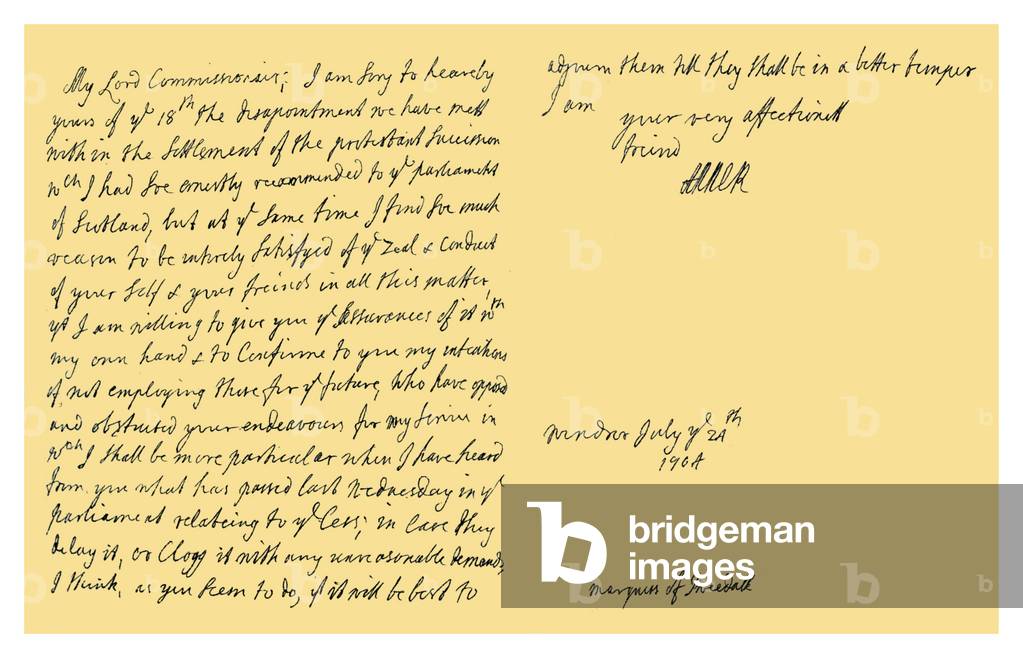 My Lord Commissioner; I am sory to hear by
yours of yᵉ 18ᵗʰ the disapointment we have mett
with in the settlement of the protestant succession
wᶜʰ I had soe ernestly recommended to yᵉ parliament
of Scotland, but at yᵉ same time I find soe much
reason to be intirely satisfyed of yᵉ Zeal & conduct
of your self & your freinds in all this matter,
yᵗ I am willing to give you yᵉ assurances of it wᵗʰ
my own hand & to Confirme to you my intentions
of not employing those for yᵉ future, who have opposd
and obstructed your endeavours for my service in
wᶜʰ I shall be more particular when I have heard
from you what has passed last Wednesday in yᵉ
parliament relateing to yᵉ Cess; in case they
delay it, or Clogg it with any unreasonable demands,
I think, as you seem to do, yᵗ it will be best to
adjourn them till they shall be in a better temper
I am
your very affectionett
freind
ANNE R
Windsor July yᵉ 24ᵗʰ
1704
marquess of Tweedale
bridgeman
images